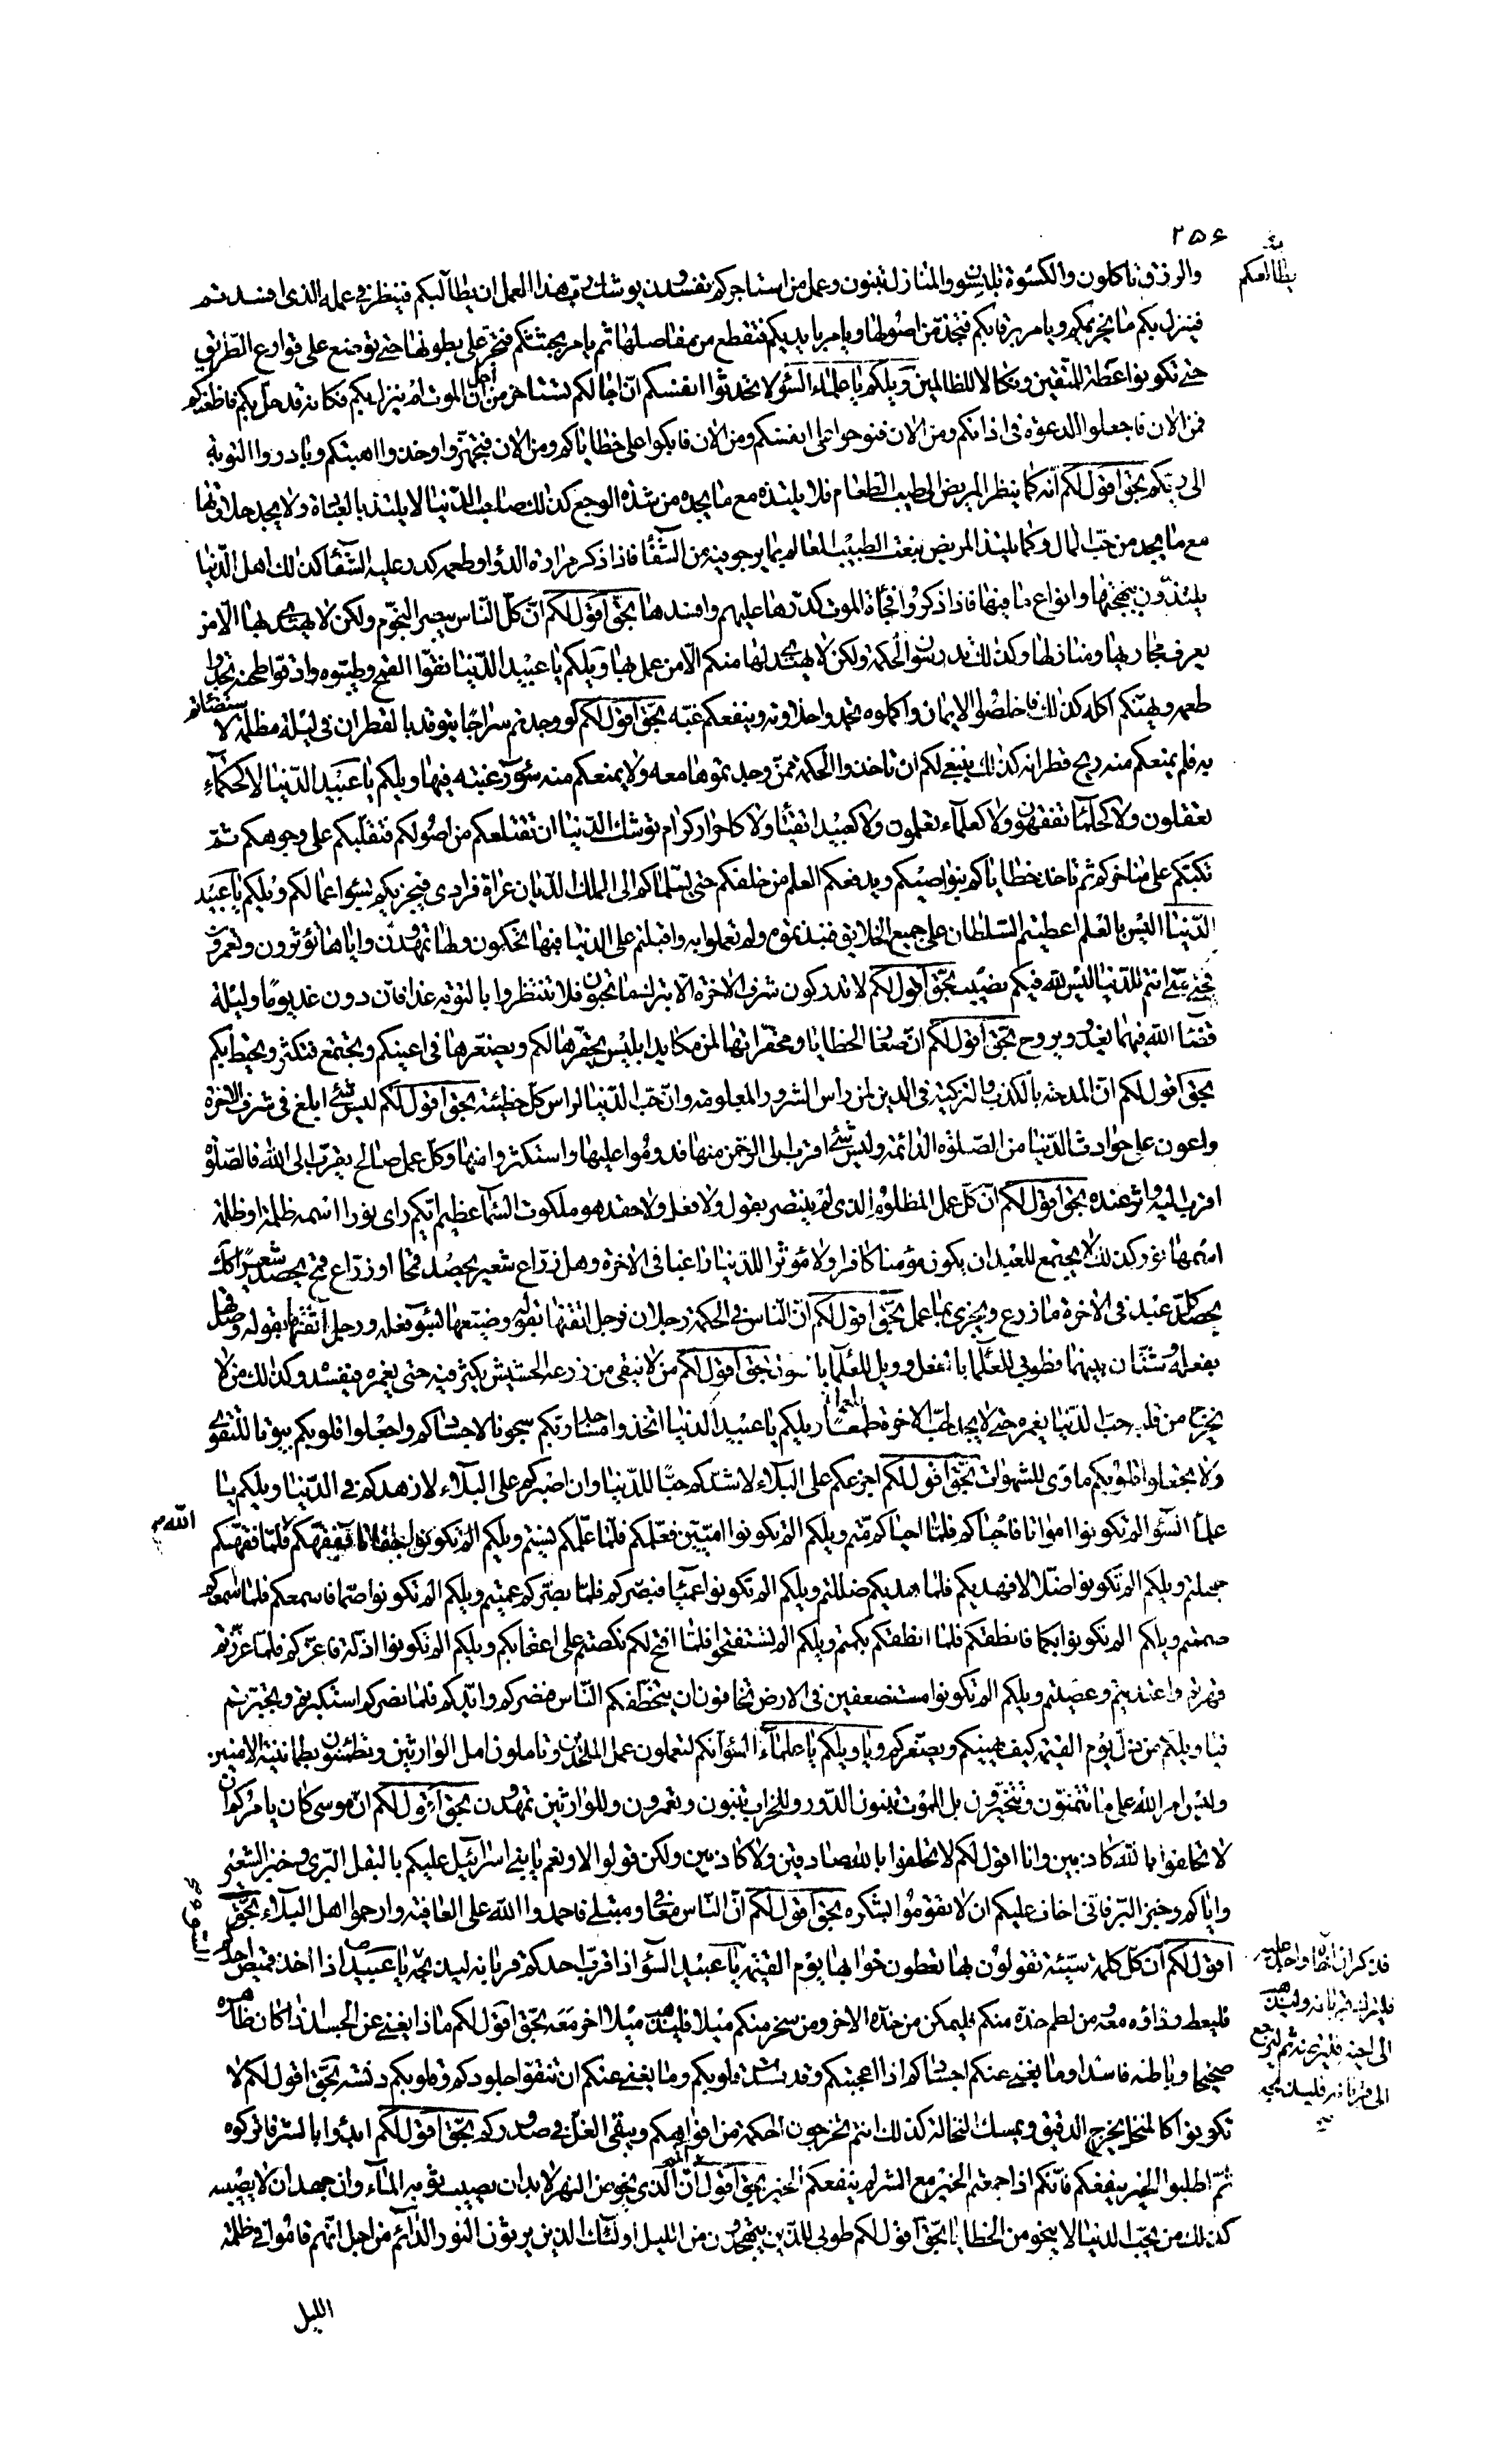 ٢٥٦
والرزق تاكلون والكسوة تلبسون والمنازل تبنون وعمل من استاجركم تفسدون يوشك رب هذا العمل ان يطالبكم فينظر في عمله الذي افسدتم
فينزل بكم ما يخزيكم ويامر برقابكم فتجذ من اصولها ويامر بايديكم فتقطع من مفاصلها ثم يامر بجثثكم فتجر على بطونها حتى توضع على قوارع الطريق
حتى تكونوا عظة للمتقين ونكالا للظالمين ويلكم يا علماء السوء لا تحدثوا انفسكم ان اجالكم تستاخر من اجل ان الموت لم ينزل بكم فكانه قد حل بكم فاظعنكم
فمن الان فاجعلوا الدعوة في اذانكم ومن الان فنوحوا على انفسكم ومن الان فابكوا على خطاياكم ومن الان فتجهزوا وخذوا اهبتكم وبادروا التوبة
الى ربكم بحق اقول لكم انه كما ينظر المريض الى طيب الطعام فلا يلتذه مع ما يجده من شدة الوجع كذلك صاحب الدنيا لا يلتذ بالعبادة ولا يجد حلاوتها
مع ما يجد من حب المال وكما يلتذ المريض بنعت الطبيب العالم بما يرجو فيه من الشفاء فاذا ذكر مرارة الدواء وطعمه كدر عليه الشفاء كذلك اهل الدنيا
يلتذون ببهجتها وانواع ما فيها فاذا ذكروا فجاة الموت كدرها عليهم وافسدها بحق اقول لكم ان كل الناس يبصر النجوم ولكن لا يهتدي بها الا من
يعرف مجاريها ومنازلها وكذلك تدرسون الحكمة ولكن لا يهتدي لها منكم الا من عمل بها ويلكم يا عبيد الدنيا نقوا القمح وطيبوه وادقوا طحنه تجدوا
طعمه ويهنئكم اكله كذلك فاخلصوا الايمان واكملوه تجدوا حلاوته وينفعكم غبه بحق اقول لكم لو وجدتم سراجا يتوقد بالقطران في ليلة مظلمة لاستضاتم
به فلم يمنعكم منه ريح قطرانه كذلك ينبغي لكم ان تاخذوا الحكمة ممن وجدتموها معه ولا يمنعكم منه سوء رغبته فيها ويلكم يا عبيد الدنيا لا كحكماء
تعقلون ولا كحلماء تفقهون ولا كعلماء تعلمون ولا كعبيد اتقياء ولا كاحرار كرام توشك الدنيا ان تقتلعكم من اصولكم فتقلبكم على وجوهكم ثم
تكبكم على مناخركم ثم تاخذ خطاياكم بنواصيكم ويدفعكم العلم من خلفكم حتى يسلماكم الى الملك الديان عراة فرادى فيجزيكم بسوء اعمالكم ويلكم يا عبيد
الدنيا اليس بالعلم اعطيتم السلطان على جميع الخلايق فنبذتموه ولم تعملوا به واقبلتم على الدنيا فبها تحكمون ولها تمهدون واياها تؤثرون وتعمرون
فحتى متى انتم للدنيا ليس لله فيكم نصيب بحق اقول لكم لا تدركون شرف الاخرة الا بترك ما تحبون فلا تنتظروا بالتوبة غدا فان دون غد يوما وليلة
قضاء الله فيهما يغدو ويروح بحق اقول لكم ان صغار الخطايا ومحقراتها لمن مكايد ابليس يحقرها لكم ويصغرها في اعينكم وتجتمع فتكثر وتحيط بكم
بحق اقول لكم ان المدحة بالكذب والتزكية في الدين لمن راس الشرور المعلومة وان حب الدنيا لراس كل خطيئة بحق اقول لكم ليس شيء ابلغ في شرف الاخرة
واعون على حوادث الدنيا من الصلوة الدائمة وليس شيء اقرب الى الرحمن منها فدوموا عليها واستكثروا منها وكل عمل صالح يقرب الى الله فالصلوة
اقرب اليه واثر عنده بحق اقول لكم ان كل عمل المظلوم الذي لم ينتصر بقول ولا فعل ولا حقد هو ملكوت السماء عظيم ايكم راى نورا اسمه ظلمة او ظلمة
اسمها نور كذلك لا يجتمع للعبد ان يكون مؤمنا كافرا ولا مؤثرا للدنيا راغبا في الاخرة وهل زراع شعير يحصد قمحا او زراع قمح يحصد شعيرا كذلك
يحصد كل عبد في الاخرة ما زرع ويجزى بما عمل بحق اقول لكم ان الناس في الحكمة رجلان فرجل اتقنها بقوله وضيعها بسوء فعله ورجل اتقنها بقوله وصدقها
بفعله وشتان بينهما فطوبى للعلماء بالفعل وويل للعلماء بالقول بحق اقول لكم من لا ينقي من زرعه الحشيش يكثر فيه حتى يغمره فيفسده وكذلك من لا
يخرج من قلبه حب الدنيا يغمره حتى لا يجد لحب الاخرة طعما ويلكم يا عبيد الدنيا اتخذوا مساجد ربكم سجونا لاجسادكم واجعلوا قلوبكم بيوتا للتقوى
ولا تجعلوا قلوبكم ماوى للشهوات بحق اقول لكم اجزعكم على البلاء لاشدكم حبا للدنيا وان اصبركم على البلاء لازهدكم في الدنيا ويلكم يا
علماء السوء الم تكونوا امواتا فاحياكم فلما احياكم متم ويلكم الم تكونوا اميين فعلمكم فلما علمكم نسيتم ويلكم الم تكونوا جفاة ففقهكم الله فلما فقهكم
جهلتم ويلكم الم تكونوا ضلالا فهديكم فلما هديكم ضللتم ويلكم الم تكونوا عميا فبصركم فلما بصركم عميتم ويلكم الم تكونوا صما فاسمعكم فلما اسمعكم
صممتم ويلكم الم تكونوا بكما فانطقكم فلما انطقكم بكمتم ويلكم الم تستفتحوا فلما افتح لكم نكصتم على اعقابكم ويلكم الم تكونوا اذلة فاعزكم فلما عززتم
قهرتم واعتديتم وعصيتم ويلكم الم تكونوا مستضعفين في الارض تخافون ان يتخطفكم الناس فنصركم وايدكم فلما نصركم استكبرتم وتجبرتم
فيا ويلكم من ذل يوم القيمة كيف يهينكم ويصغركم ويا ويلكم يا علماء السوء انكم لتعملون عمل الملحدين وتاملون امل الوارثين وتطمئنون بطمانينة الامنين
وليس امر الله على ما تتمنون وتتخيرون بل للموت تبنون الدور وللخراب تبنون وتعمرون وللوارثين تمهدون بحق اقول لكم ان موسى كان يامركم ان
لا تحلفوا بالله كاذبين وانا اقول لكم لا تحلفوا بالله صادقين ولا كاذبين ولكن قولوا لا ونعم يا بني اسرائيل عليكم بالبقل البري وخبز الشعير
واياكم وخبز البر فاني اخاف عليكم ان لا تقوموا بشكره بحق اقول لكم ان الناس معافى ومبتلى فاحمدوا الله على العافية وارحموا اهل البلاء بحق
اقول لكم ان كل كلمة سيئة تقولون بها تعطون جوابها يوم القيمة يا عبيد السوء اذا قرب احدكم قربانه ليذبحه يا عبيد السوء اذا اخذ قميص احدكم
فليعط رداؤه معه من لطم خده منكم فليمكن من خده الاخر ومن سخر منكم ميلا فليذهب ميلا اخر معه بحق اقول لكم ماذا يغني عن الجسد اذا كان ظاهره
صحيحا وباطنه فاسدا وما يغني عنكم اجسادكم اذا اعجبتكم وقد فسدت قلوبكم وما يغني عنكم ان تنقوا جلودكم وقلوبكم دنسة بحق اقول لكم لا
تكونوا كالمنخل يخرج الدقيق ويمسك النخالة كذلك انتم تخرجون الحكمة من افواهكم ويبقى الغل في صدوركم بحق اقول لكم ابدؤا بالشر فاتركوه
ثم اطلبوا الخير ينفعكم فانكم اذا جمعتم الخير مع الشر لم ينفعكم الخير بحق اقول لكم ان الذي يخوض النهر لا بد ان يصيب ثوبه الماء وان جهد ان لا يصيبه
كذلك من يحب الدنيا لا ينجو من الخطايا بحق اقول لكم طوبى للذين يتهجدون من الليل اولئك الذين يرثون النور الدائم من اجل انهم قاموا في ظلمة
الليل
فذكر ان اخاه واجد عليه
فليترك قربانه وليذهب
الى اخيه فليرضه ثم ليرجع
الى قربانه فليذبحه